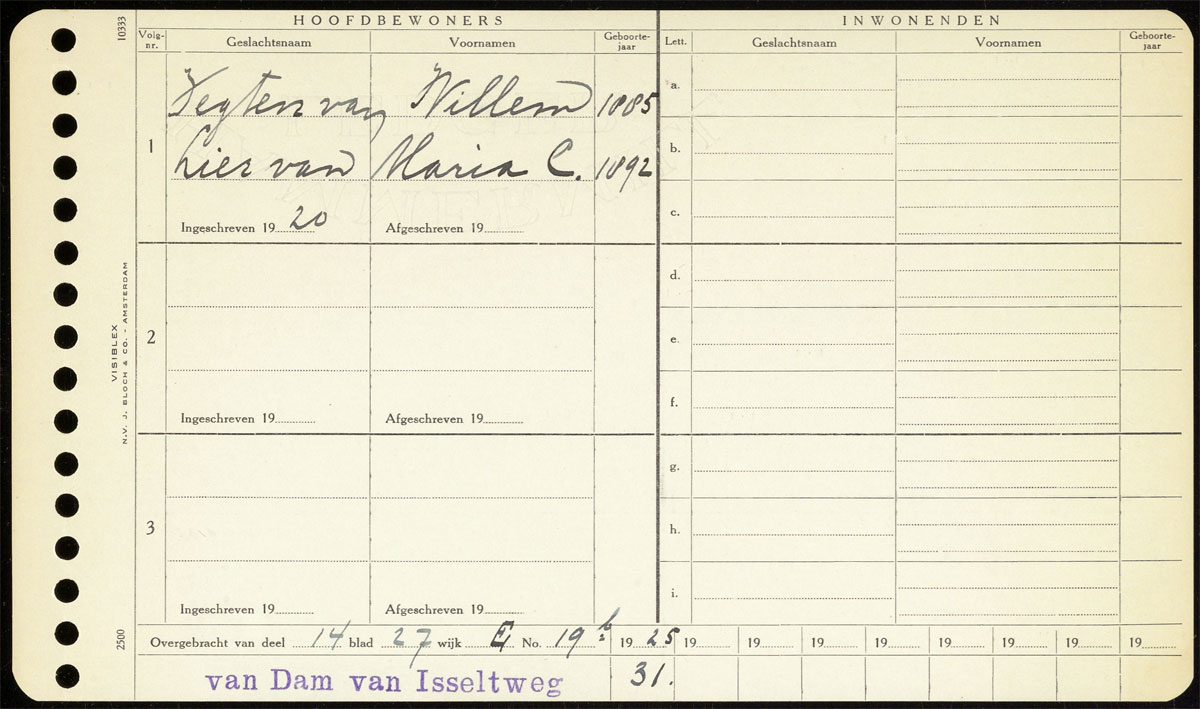 10333
HOOFDBEWONERS INWONENDEN
Volg-nr. Geslachtsnaam Voornamen Geboorte-jaar Lett. Geslachtsnaam Voornamen Geboorte-jaar
1 Vegten van Willem 1885 a.
Lier van Maria C. 1892 b.
Ingeschreven 19 20 Afgeschreven 19 c.
d.
2 e.
Ingeschreven 19 Afgeschreven 19 f.
g.
3 h.
Ingeschreven 19 Afgeschreven 19 i.
VISIBLEX
N.V. J. BLOCH & CO. - AMSTERDAM
2500
Overgebracht van deel 14 blad 27 wijk E No. 19 b 19 25 19 19 19 19 19 19 19 19
van Dam van Isseltweg 31.